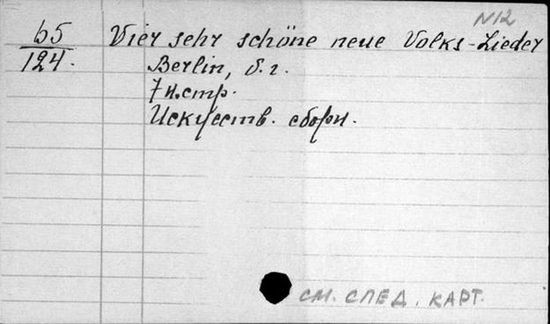 N12
65
124.
Vier sehr schöne neue Volks-Lieder
Berlin, б.г.
7 н.стр.
Искусств. сборн.
см. след. карт.